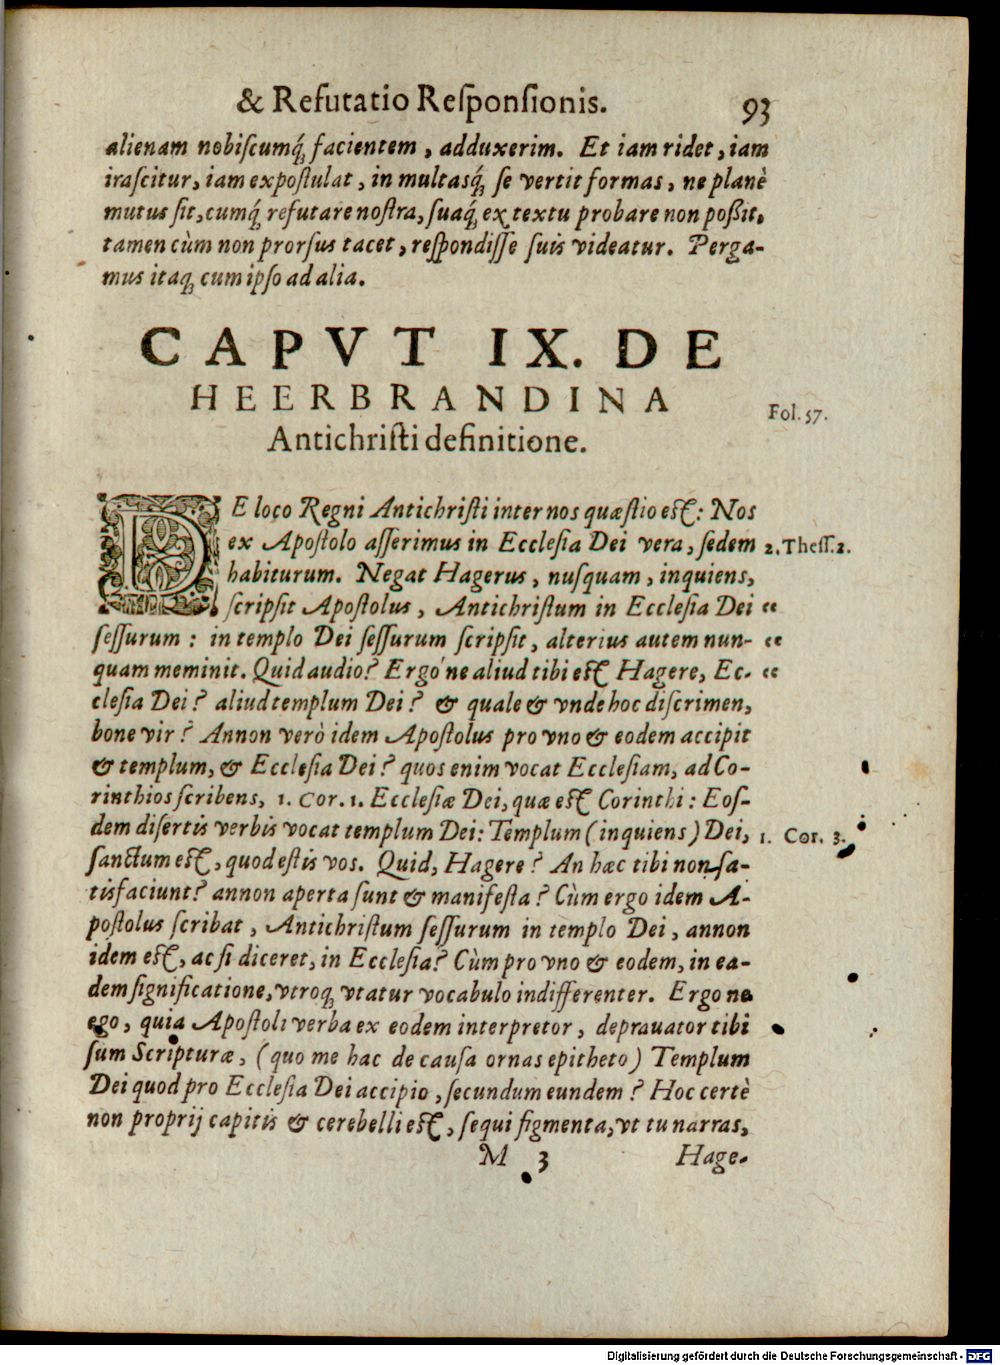 & Refutatio Reſponſionis. 93
alienam nobiſcumq́; facientem, adduxerim. Et iam ridet, iam
iraſcitur, iam expoſtulat, in multasq́; ſe vertit formas, ne planè
mutus ſit, cumq́; refutare noſtra, ſuaq́; ex textu probare non poßit,
tamen cùm non prorſus tacet, reſpondiſſe ſuis videatur. Perga-
mus itaq; cum ipſo ad alia.
CAPVT IX. DE
HEERBRANDINA
Fol. 57.
Antichriſti definitione.
DE loco Regni Antichriſti inter nos quæſtio eſt: Nos
ex Apoſtolo aſſerimus in Eccleſia Dei vera, ſedem 2. Theſſ. 2.
habiturum. Negat Hagerus, nuſquam, inquiens,
ſcripſit Apoſtolus, Antichriſtum in Eccleſia Dei “
ſeſſurum: in templo Dei ſeſſurum ſcripſit, alterius autem nun- “
quam meminit. Quid audio? Ergo ne aliud tibi eſt Hagere, Ec- “
cleſia Dei? aliud templum Dei? & quale & vnde hoc diſcrimen,
bone vir? Annon verò idem Apoſtolus pro vno & eodem accipit
& templum, & Eccleſia Dei? quos enim vocat Eccleſiam, ad Co-
rinthios ſcribens, 1. Cor. 1. Eccleſiæ Dei, quæ eſt Corinthi: Eoſ-
dem diſertis verbis vocat templum Dei: Templum (inquiens) Dei, 1. Cor. 3.
ſanctum eſt, quod eſtis vos. Quid, Hagere? An hæc tibi non ſa-
tisfaciunt? annon aperta ſunt & manifeſta? Cùm ergo idem A-
poſtolus ſcribat, Antichriſtum ſeſſurum in templo Dei, annon
idem eſt, ac ſi diceret, in Eccleſia? Cùm pro vno & eodem, in ea-
dem ſignificatione, vtroq; vtatur vocabulo indifferenter. Ergo ne
ego, quia Apoſtoli verba ex eodem interpretor, deprauator tibi
ſum Scripturæ, (quo me hac de cauſa ornas epitheto) Templum
Dei quod pro Eccleſia Dei accipio, ſecundum eundem? Hoc certè
non proprij capitis & cerebelli eſt, ſequi figmenta, vt tu narras,
M 3 Hage-
Digitalisierung gefördert durch die Deutsche Forschungsgemeinschaft - DFG